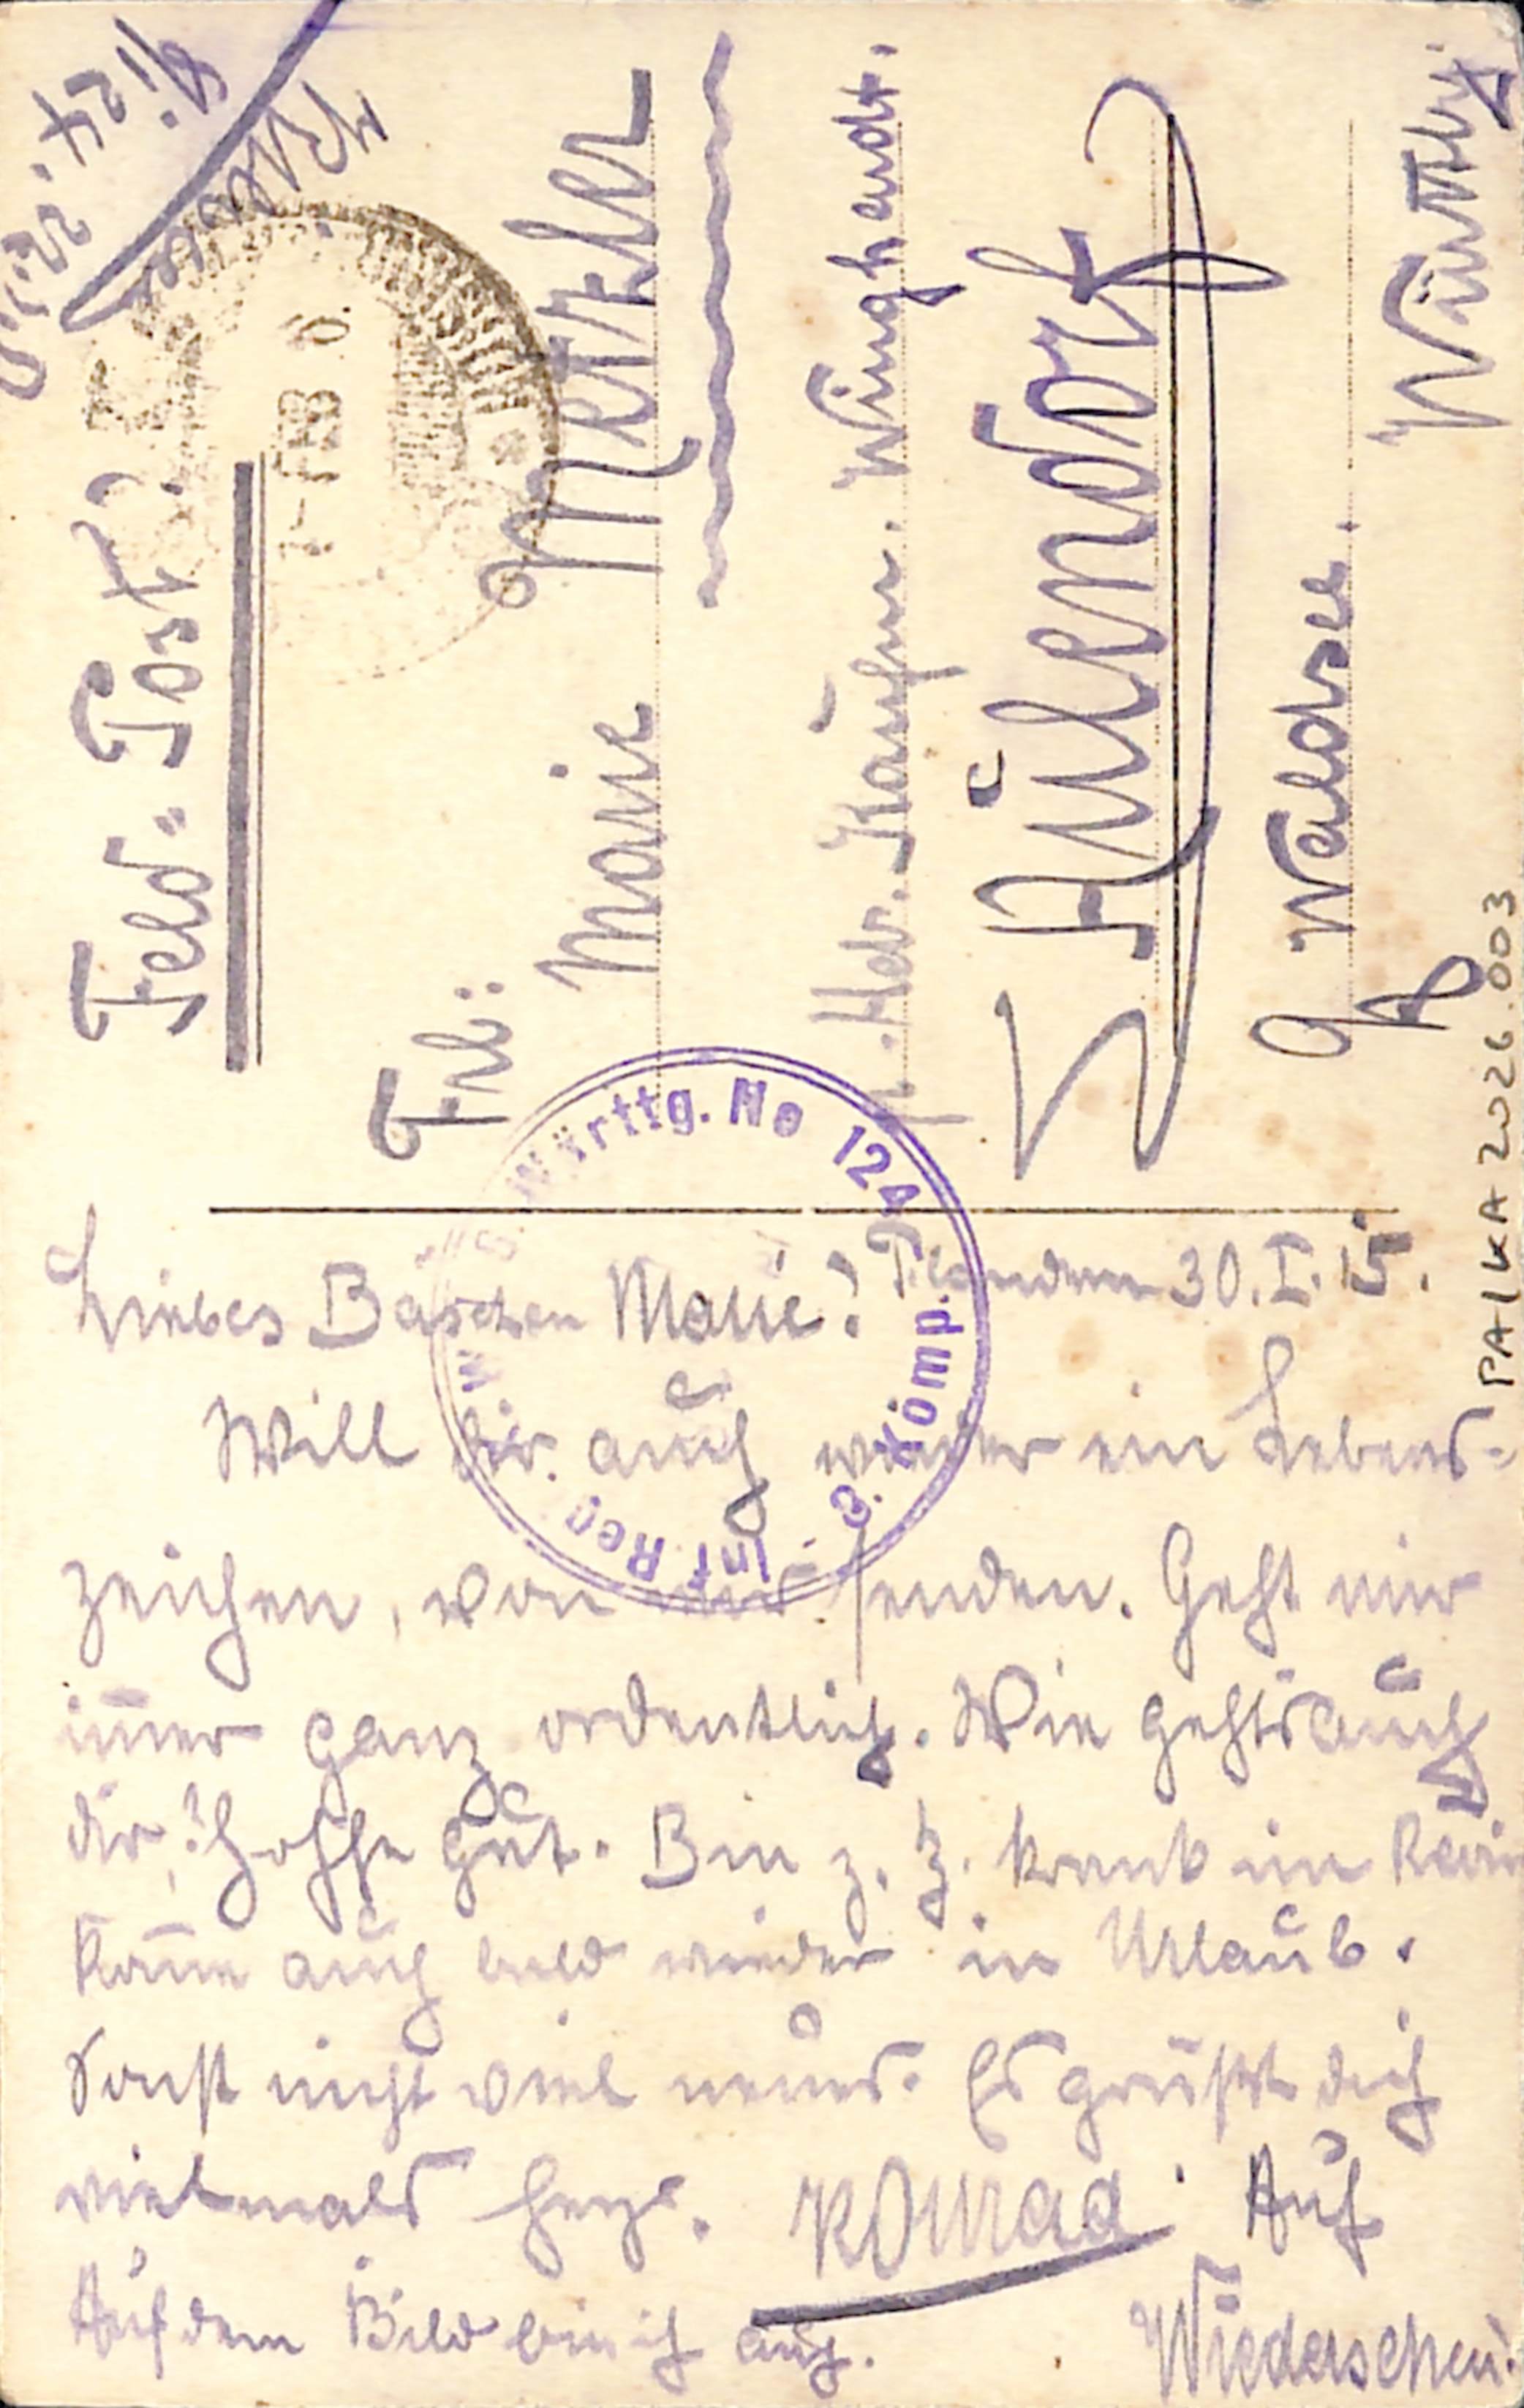 Feld-Post.
Frl:
Marie Metzler
p. Adr. Kaufm. Winghardt.
Aülendorf
Waldsee.
Württbg
Württg. No 124
8. Komp.
Inf Reg
Flandern 30. I.
Liebes Bäschen Marie!
Will dir auch wieder ein Lebens-
zeichen, von mir senden. Geht mir
immer ganz ordentlich. Wie gehts auch
dir? Hoffe gut. Bin z. Z. krank im
komme auch bald wieder in Urlaub.
Sonst nicht viel neues. Es grüßt dich
vielmals herzl. Konrad. Auf
Auf dem Bild bin ich auch. Wiedersehen!
PAIKA 2026.003